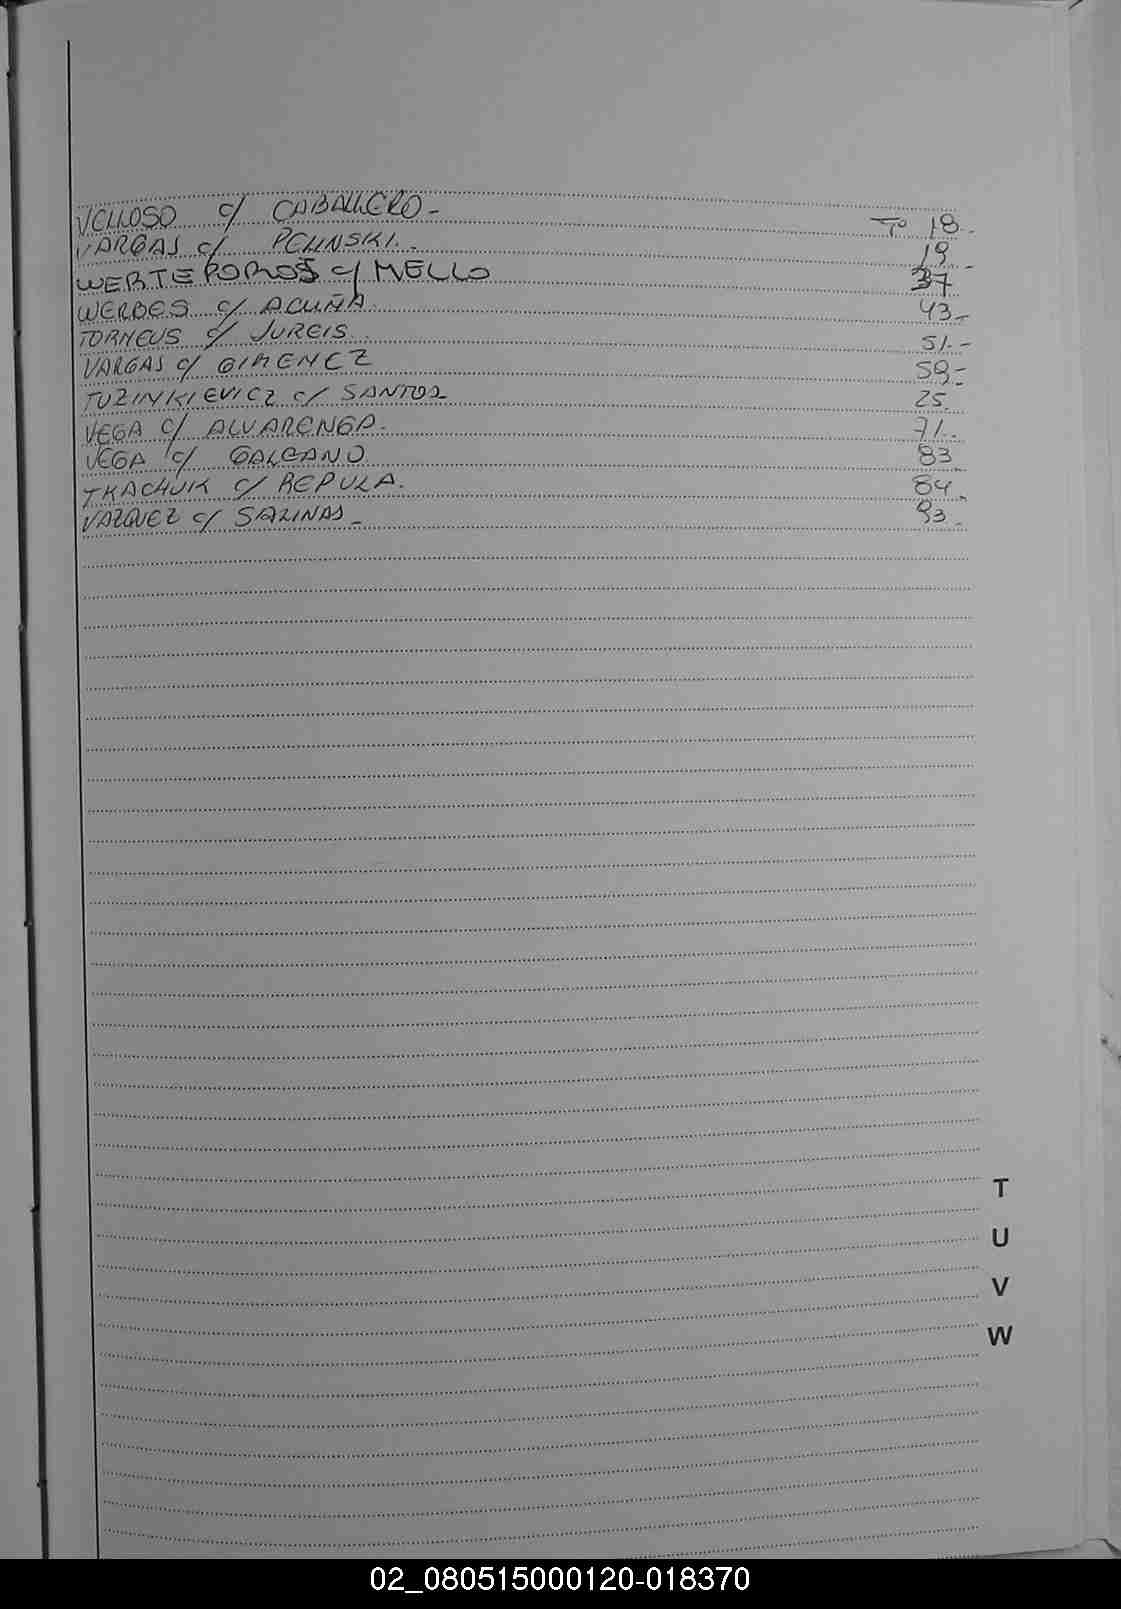 VELLOSO c/ CABALLERO - Tº 18-
VARGAS c/ PELINSKI. 19-
WERTEPOROS c/ MELLO 37
WERBES c/ ACUÑA 43-
TORNEUS c/ JUREIS 51.-
VARGAS c/ GIMENEZ 59.-
TUZINKIEVICZ c/ SANTOS 25.
VEGA c/ ALVARENGA. 71.
VEGA c/ GALEANO 83
TKACHUK c/ REPULA. 84.
VAZQUEZ c/ SALINAS - 93.
T
U
V
W
02_080515000120-018370